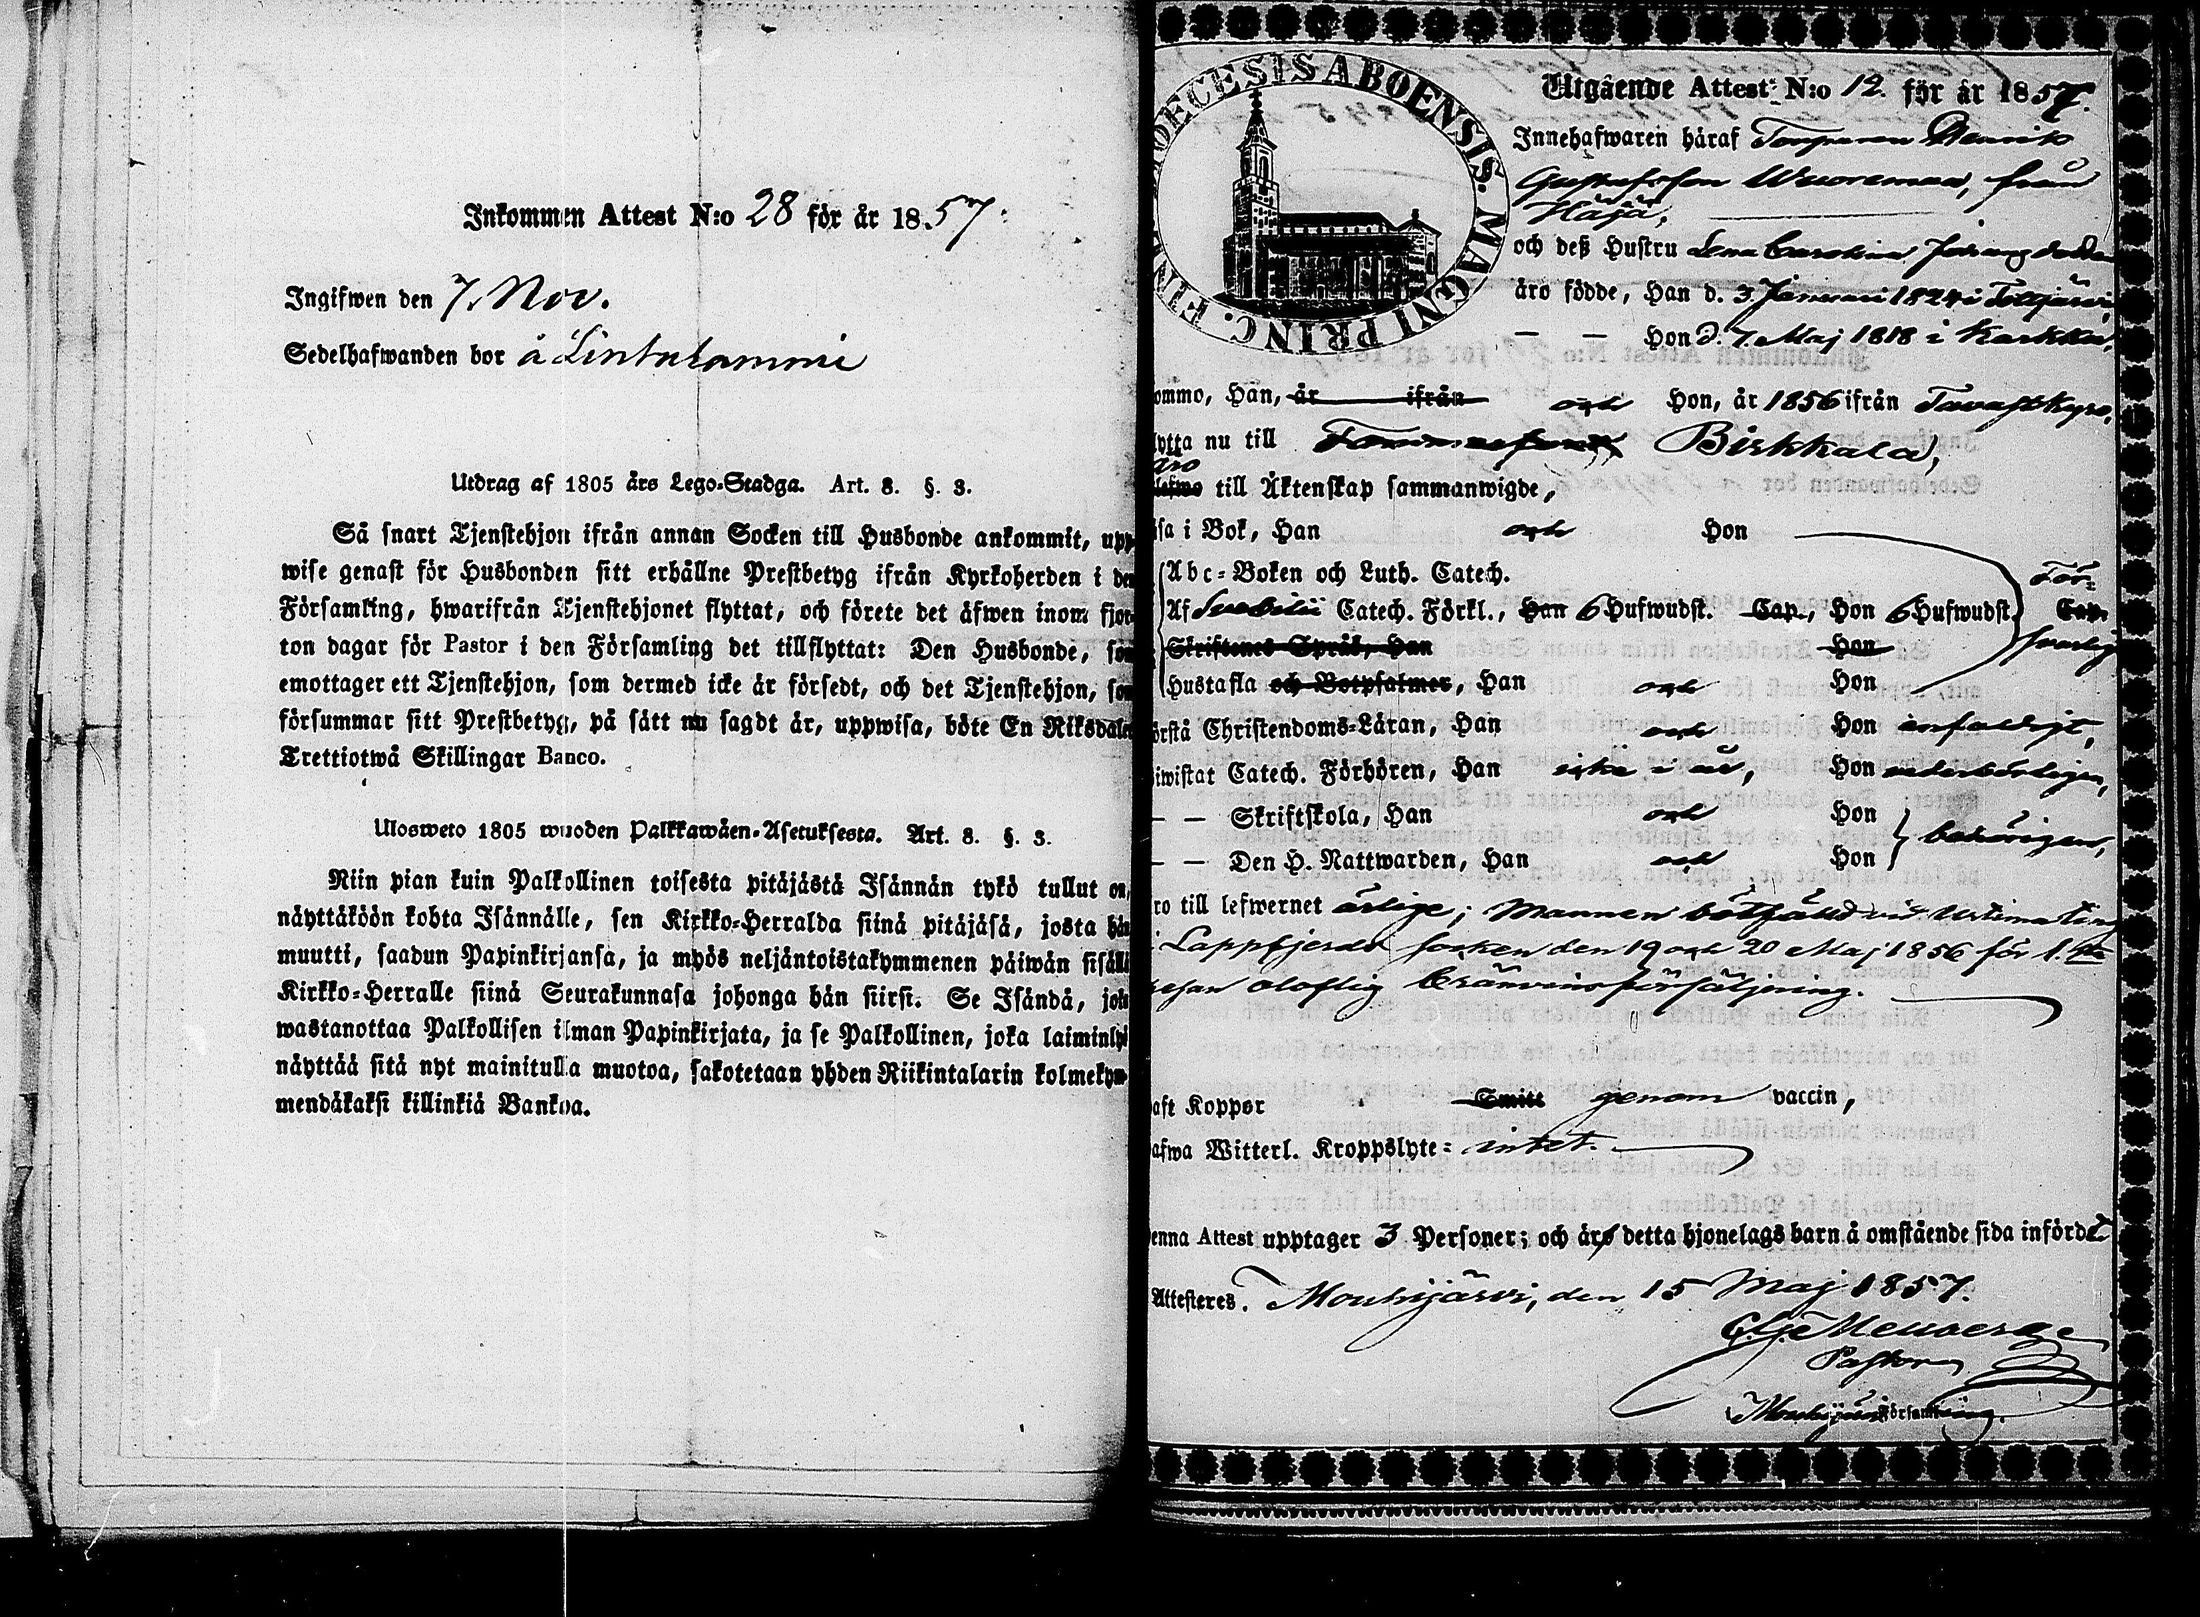 Inkommen Attest N:o 28 för år 1857.
Ingifwen den 7. Nov.
Sedelhafwanden bor å Lintulammi
Utdrag af 1805 års Lego-Stadga. Art. 8. §. 3.
Så snart Tjenstehjon ifrån annan Socken till Husbonde ankommit, upp-
wise genast för Husbonden sitt erhållne Prestbetyg ifrån Kyrkoherden i den
Församling, hwarifrån Tjenstehjonet flyttat, och förete det äfwen inom fjor-
ton dagar för Pastor i den Församling det tillflyttat: Den Husbonde, som
emottager ett Tjenstehjon, som dermed icke är försedt, och det Tjenstehjon, som
försummar sitt Prestbetyg, på sätt nu sagdt är, uppwisa, böte En Riksdaler
Trettiotwå Skillingar Banco.
Ulosweto 1805 wuoden Palkkawäen-Asetuksesta. Art. 8. §. 3.
Niin pian kuin Palkollinen toisesta pitäjästä Isännän tykö tullut on,
näyttäköön kohta Isännälle, sen Kirkko-Herralda siinä pitäjäsä, josta hän
muutti, saadun Papinkirjansa, ja myös neljäntoistakymmenen päiwän sisällä
Kirkko-Herralle siinä Seurakunnasa johonga hän siirsi. Se Isändä, joka
wastanottaa Palkollisen ilman Papinkirjata, ja se Palkollinen, joka laiminlyö
näyttää sitä nyt mainitulla muotoa, sakotetaan yhden Riikintalarin kolmekym-
mendäkaksi killinkiä Bankoa.
DIOECESIS ABOENSIS. MAGNI PRINC. FIN
Utgående Attest N:o 12. för år 1857.
Innehafwaren häraf Torparen Henrik
Gustafsson Wuorenmaa, från
Häjä,
och deß Hustru Lena Carolina Johansdotter
äro födde, Han d. 3 Januari 1824 i Tottijärvi,
— — Hon d. 7. Maj 1818 i Karkku,
ommo, Han, år ifrån och Hon, år 1856 ifrån Tavastkyro,
lytta nu till Birkkala,
äro till Äktenskap sammanwigde,
sa i Bok, Han och Hon
Abc-Boken och Luth. Catech. För-
Af Svebilii Catech. Förkl., Han 6 Hufwudst. Cap., Hon 6 Hufwudst. Cap.
Skriftenes Språk, Han Hon svarligt
Hustafla och Botpsalmer, Han och Hon
örstå Christendoms-Läran, Han och Hon enfaldigt,
iwistat Catech. Förhören, Han icke i år, Hon vederbörligen,
— — Skriftskola, Han och Hon
behörigen,
— — Den H. Nattwarden, Han och Hon
ro till lefwernet ärlige; Mannen bötfälld vid Urtima ting
i Lappfjerds socken den 19 och 20 Maj 1856 för 1.sta
resan olaflig bränvinsförsäljning.
aft Koppor Smitt genom vaccin,
afwa Witterl. Kroppslyte: intet.
enna Attest upptager 3 Personer; och äro detta hjonelags barn å omstående sida infördt
Attesteres. Mouhijärvi, den 15 Maj 1857.
Pastor
Mouhijärvi Församling.